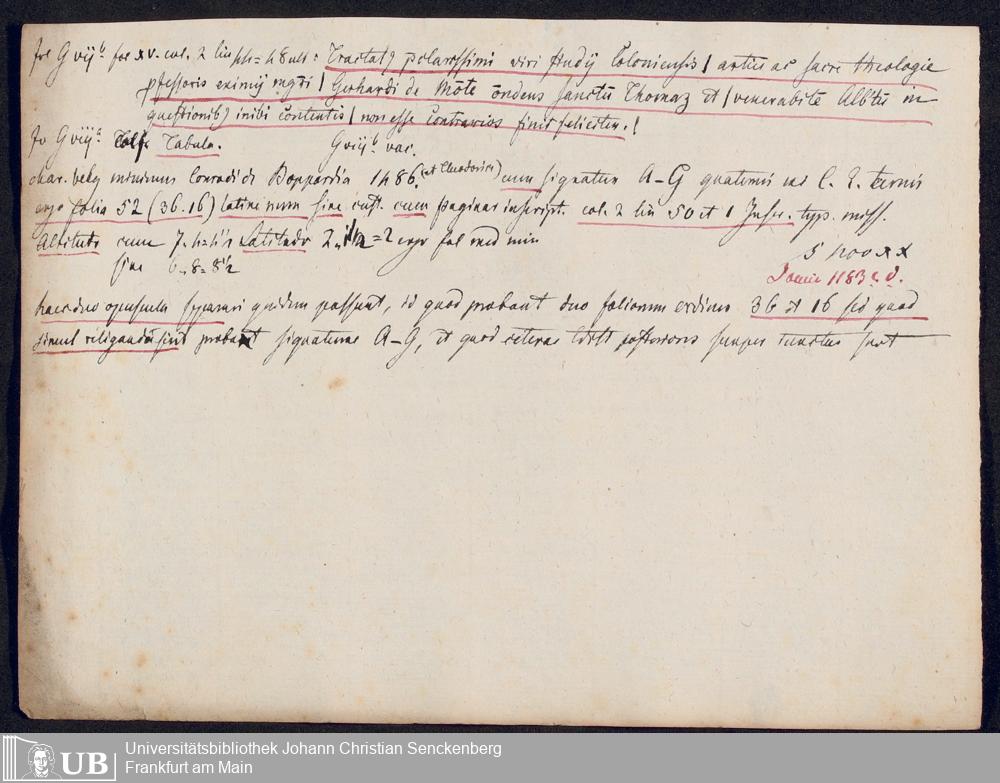 fo G vijb. fol xv. col. 2 lin 44=48 ult: Tractat9 pclarissimi viri studij Coloniensis / artiu ac sacre theologie
pfessoris eximij mgri / Gerhardi de Mōte ōndens sanctū Thomaz et / venerabile Albtū in
questionib3 inibi contentis / non esse contrarios finit feliciter. /
fo G viija. Tabula. G viijb. vac.
char. minimus Conradi de Boppardia 1486. (et Theodorici) cum signatur A–G quaternis ternis
ergo folia 52 (36.16) latine num sine cust. cum paginar inscript. col. 2 lin 50 et 1 typ. miss.
Altitudo cum 7. Latitudo 2 ergo fol med min
sine 6 8= 8½
1183
haec duo opuscula separari quidem possunt, id quod probant duo foliorum ordines 36 et 16 sed quod
simul religanda sint probant signaturae A–G, et quod semper sunt
Universitätsbibliothek Johann Christian Senckenberg
Frankfurt am Main
UB